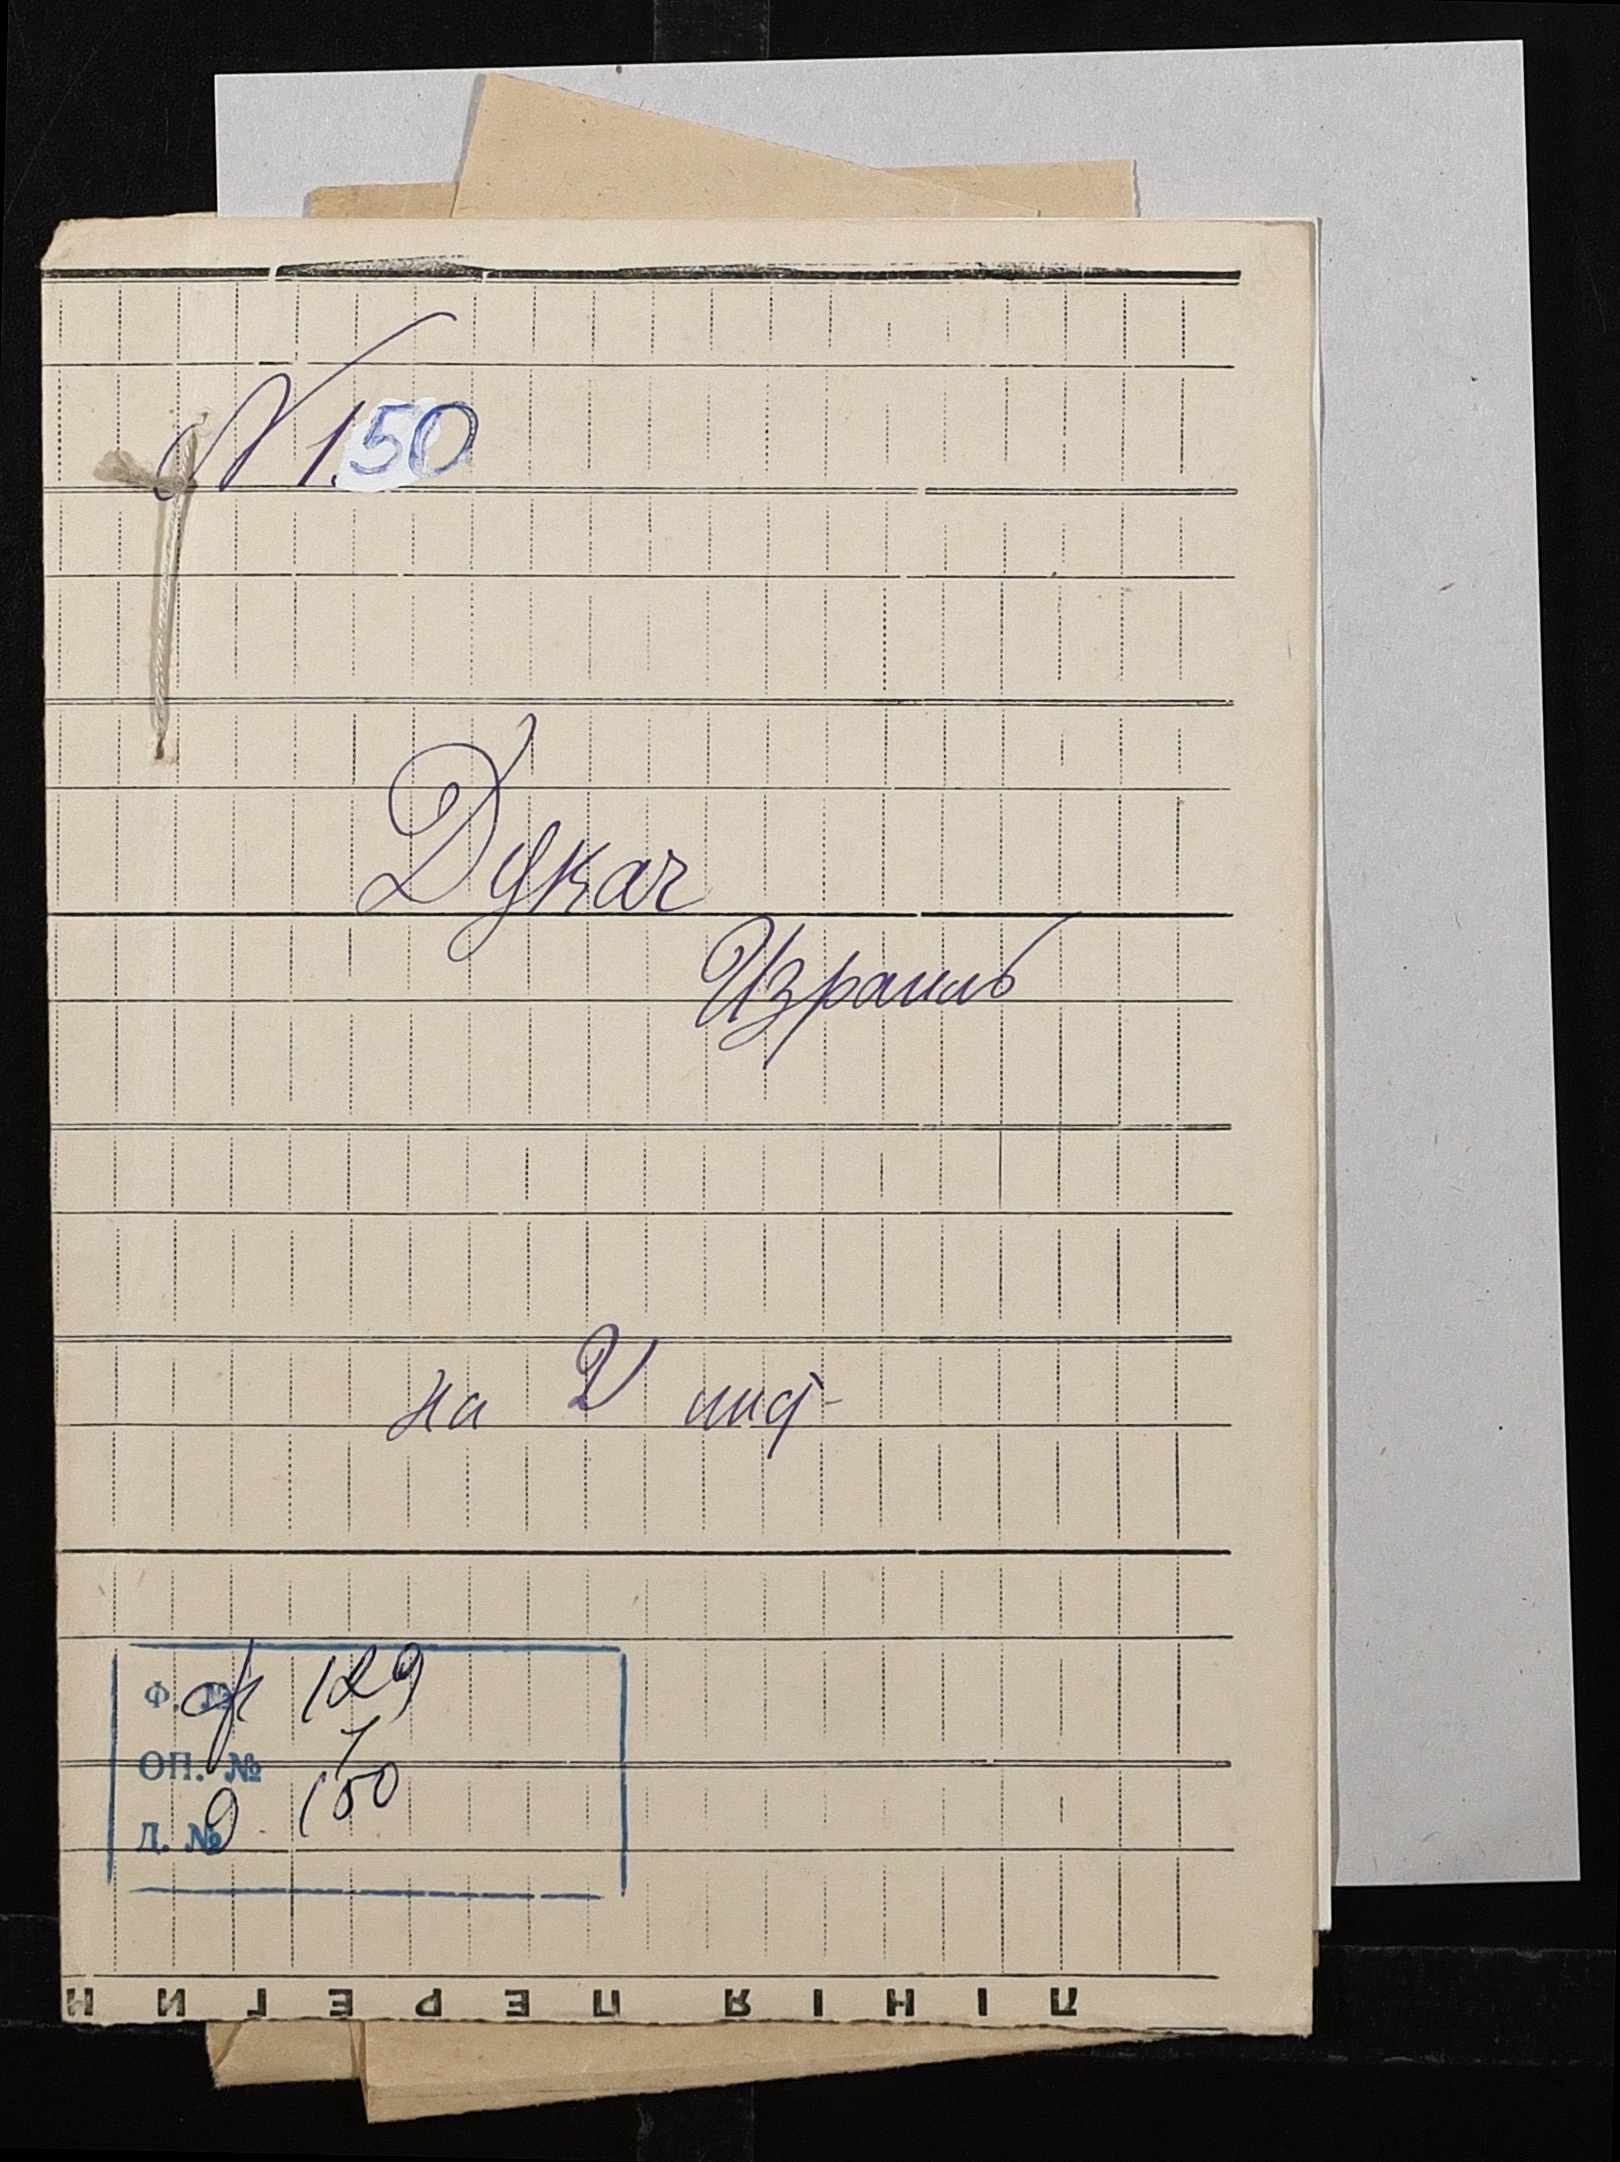 № 150
Дукач
Израиль
на 2
Ф. № ф 129
ОП. № 1
Д. № д 150
ЛІНІЯ ПЕРЕГИН